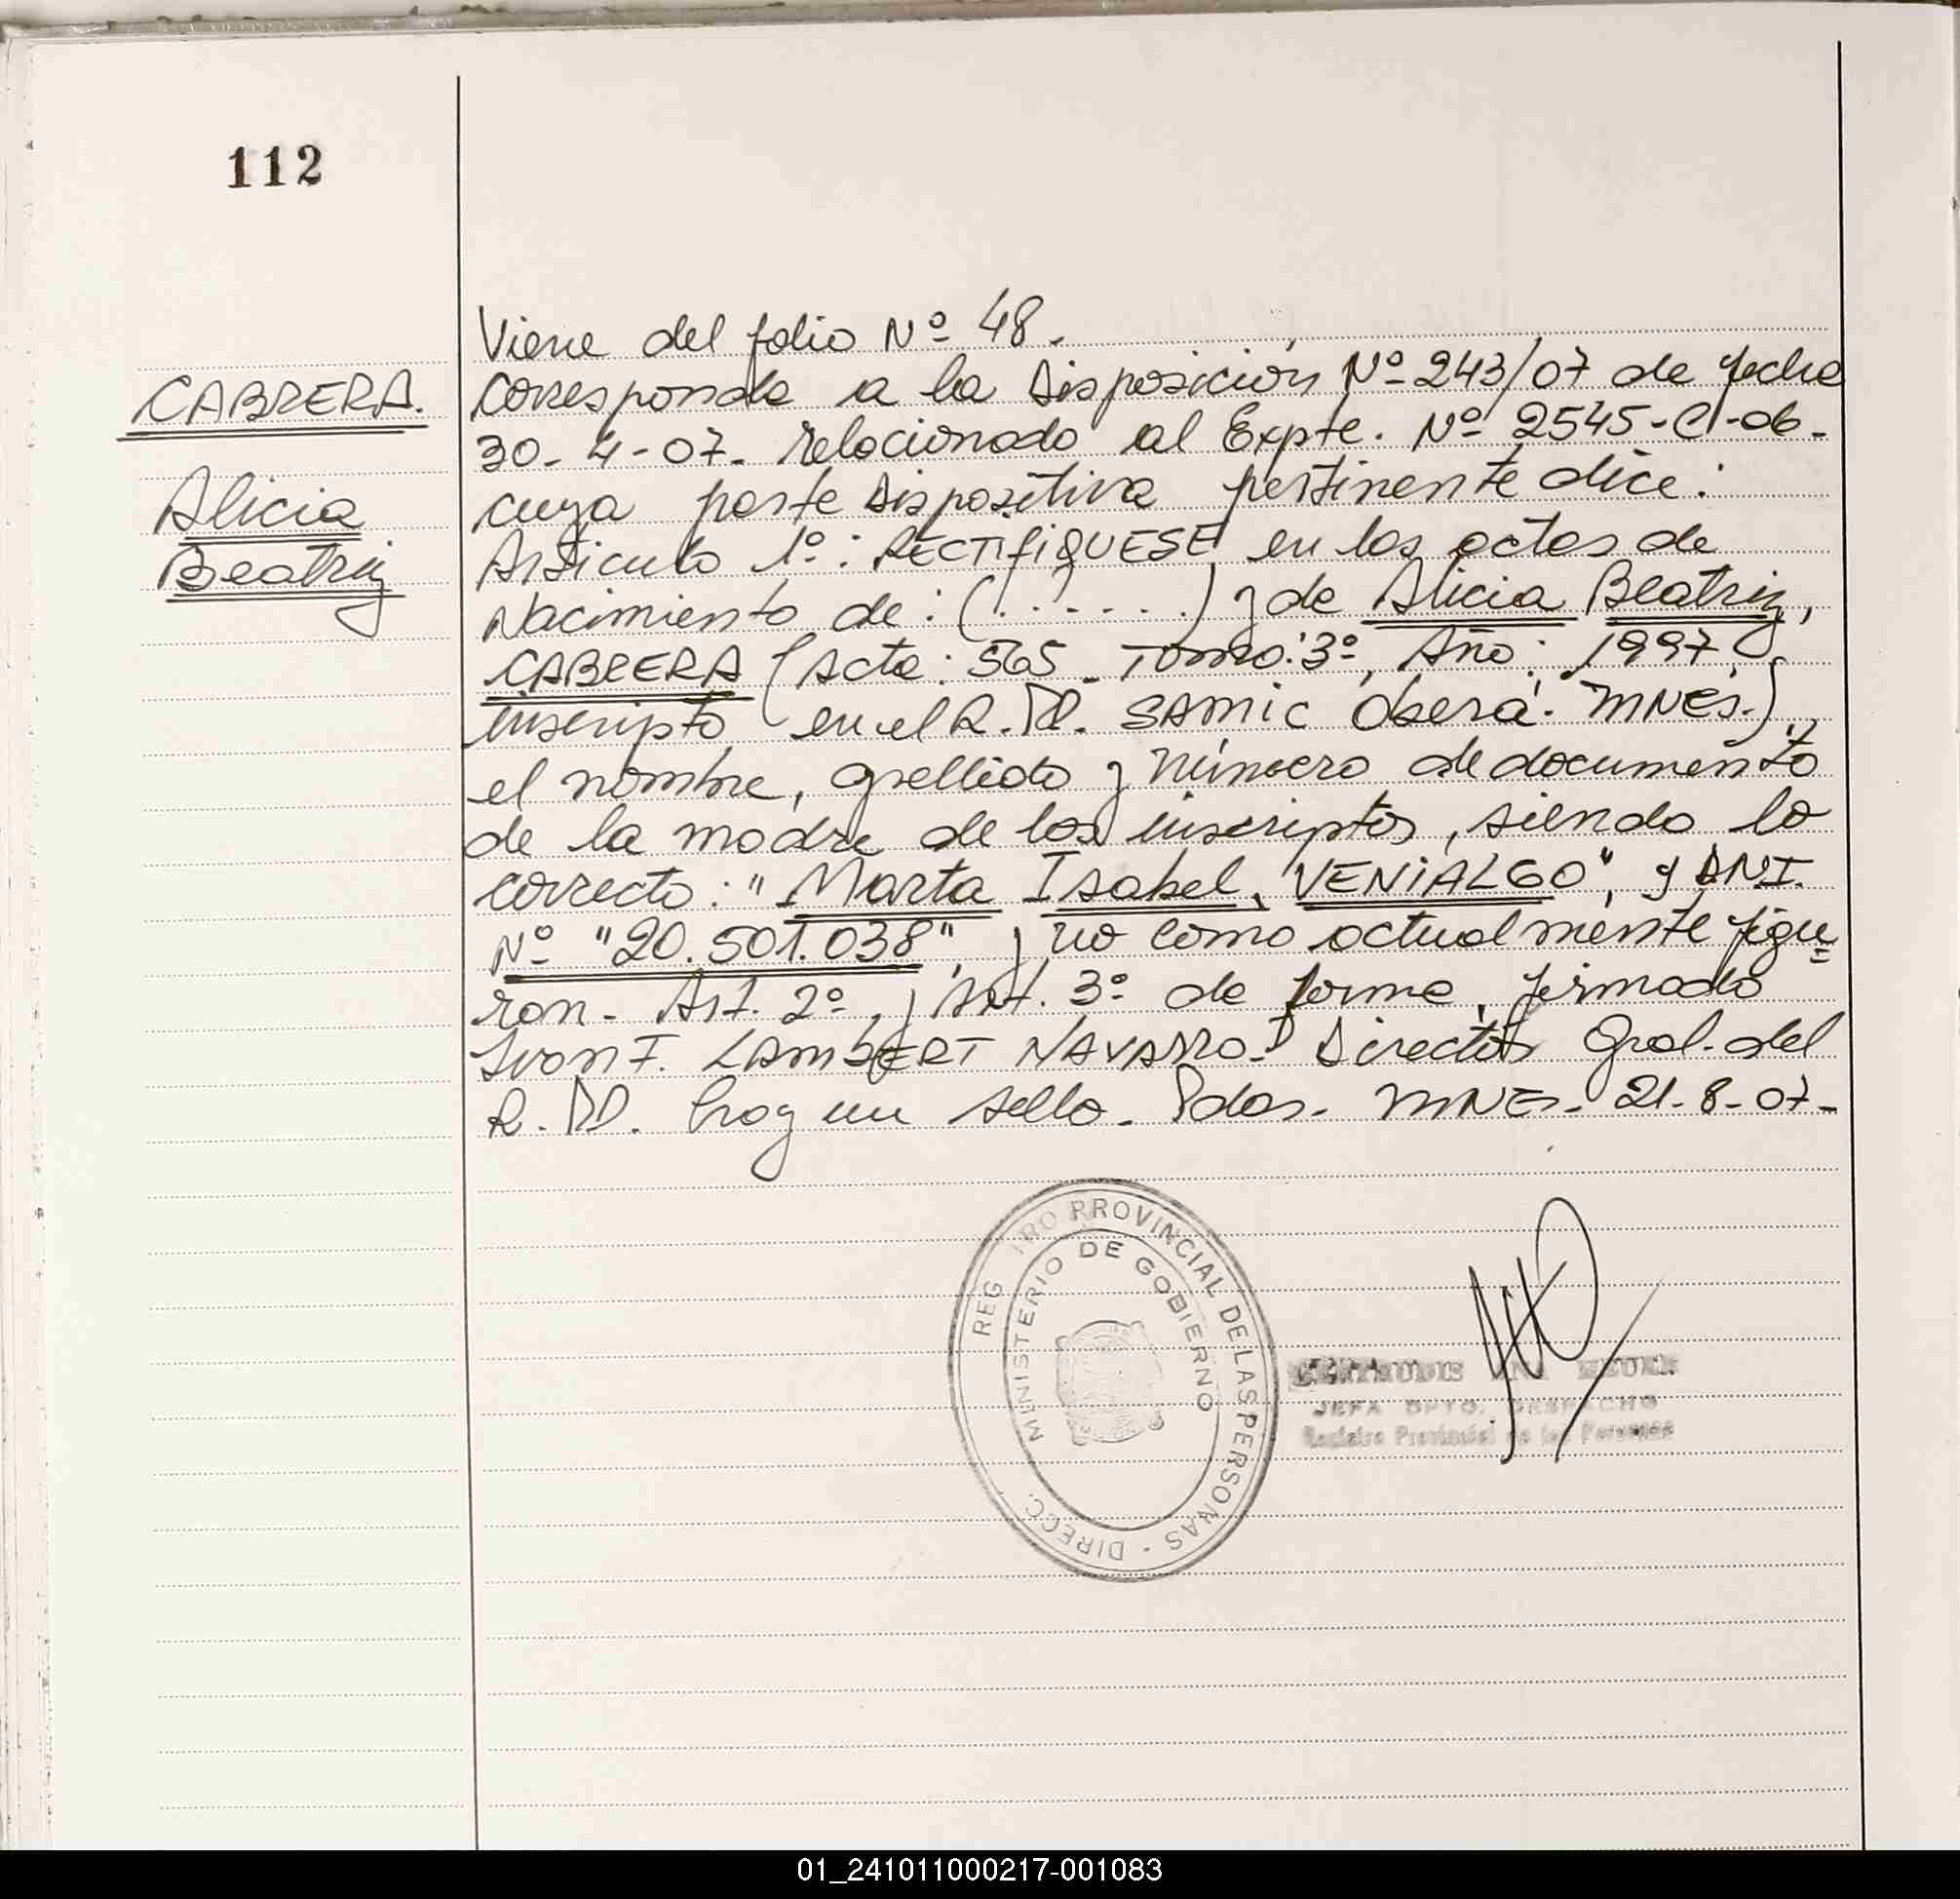 112
CABRERA.
Alicia
Beatriz
Viene del folio Nº 48.
Corresponde a la Disposición Nº 243/07 de fecha
30-4-07. relacionado al Expte. Nº 2545-C-06.
cuya parte Dispositiva pertinente dice:
Articulo 1º: RECTIFIQUESE en las actas de
Nacimiento de: (.......) y de Alicia Beatriz,
CABRERA (Acta: 565 Tomo: 3º, Año: 1997,
inscripta en el R.PP. SAMIC Oberá. MNES.)
el nombre, apellido y número de documento
de la madre de los inscriptos, siendo lo
correcto: "Marta Isabel, VENIALGO", y DNI.
Nº "20.501.038" y no como actualmente figu
ran. Art. 2º y Art. 3º de forma, firmado
Ivan F. LAMBERT NAVARRO. Director Gral. del
R.PP. hay un sello. Pdas. MNES. 21-8-07-
REG TRO PROVINCIAL DE LAS PERSONAS - DIRECC.
MINISTERIO DE GOBIERNO
JEFA DPTO. DESPACHO
Registro Provincial de las Personas
01_241011000217-001083